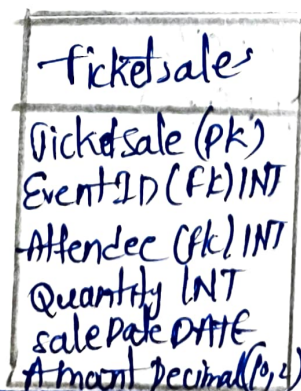 Ticketsales
Ticketsale (PK)
EventID (FK) INT
Attendee (fk) INT
Quantity INT
saleDate DATE
Amount Decimal(10,2)